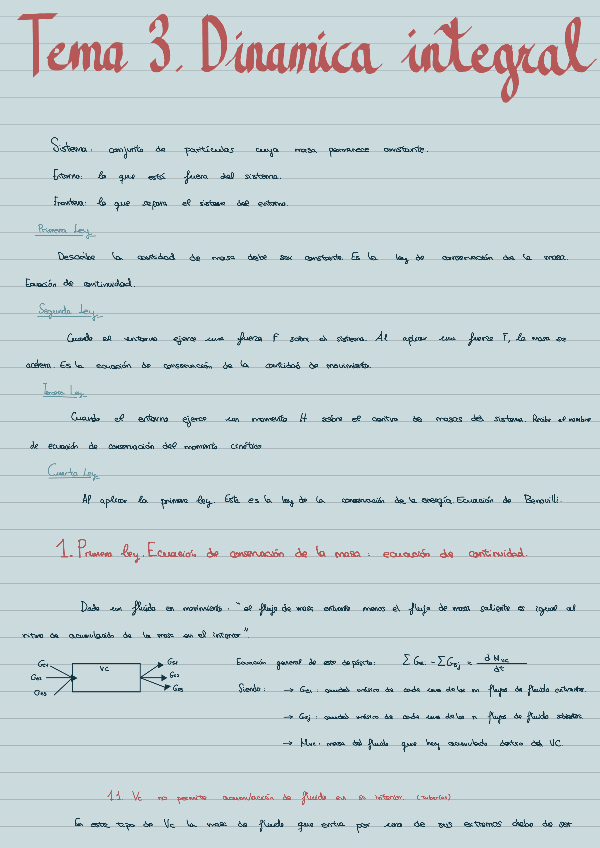 Tema 3. Dinamica integral
Sistema: conjunto de partículas cuya masa permanece constante.
Entorno: lo que está fuera del sistema.
Frontera: lo que separa el sistema del entorno.
Primera Ley
Describe la cantidad de masa debe ser constante. Es la ley de conservación de la masa.
Ecuación de continuidad.
Segunda Ley
Cuando el entorno ejerce una fuerza F sobre el sistema. Al aplicar una fuerza F, la masa se
acelera. Es la ecuación de conservación de la cantidad de movimiento.
Tercera Ley
Cuando el entorno ejerce un momento H sobre el centro de masas del sistema. Recibe el nombre
de ecuación de conservación del momento cinético
Cuarta Ley
Al aplicar la primera ley. Esta es la ley de la conservación de la energía. Ecuación de Bernoulli.
1. Primera ley. Ecuación de conservación de la masa: ecuación de continuidad.
Dado un fluido en movimiento: "el flujo de masa entrante menos el flujo de masa saliente es igual al
ritmo de acumulación de la masa en el interior".
Ge1 Ge2 Ge3 VC Gs1 Gs2 Gs3
Ecuación general de este depósito: ΣGei - ΣGsj = dMvc/dt
Siendo: → Gei: caudal másico de cada uno de los m flujos de fluido entrantes.
→ Gsj: caudal másico de cada uno de los n flujos de fluido salientes.
→ Mvc: masa del fluido que hay acumulado dentro del VC.
1.1 Vc no permite acumulación de fluido en su interior. (tuberías)
En este tipo de Vc la masa de fluido que entra por uno de sus extremos debe de ser